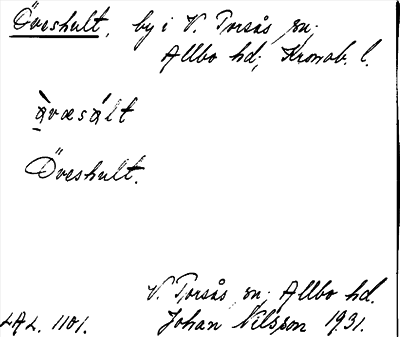 Öveshult, by i V. Torsås sn;
Allbo hd; Kronob. l.
àvæsált
Öveshult.
V. Torsås sn; Allbo hd.
LAL. 1101. Johan Nilsson 1931.